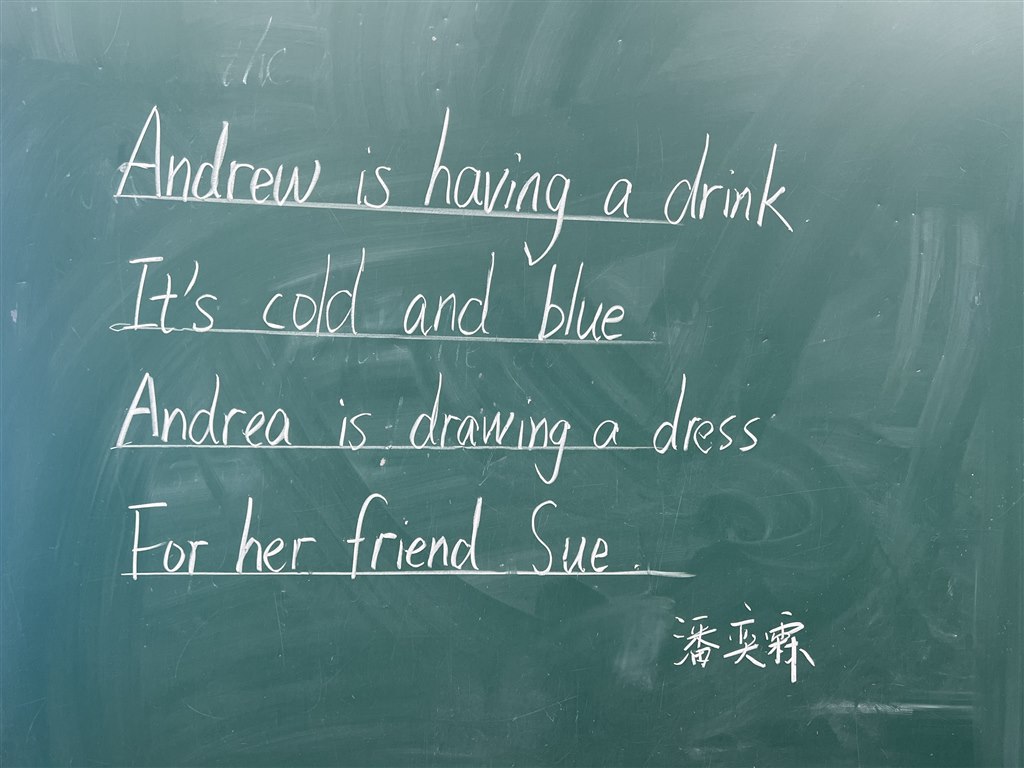 Andrew is having a drink.
It's cold and blue
Andrea is drawing a dress
For her friend Sue.
潘奕霖